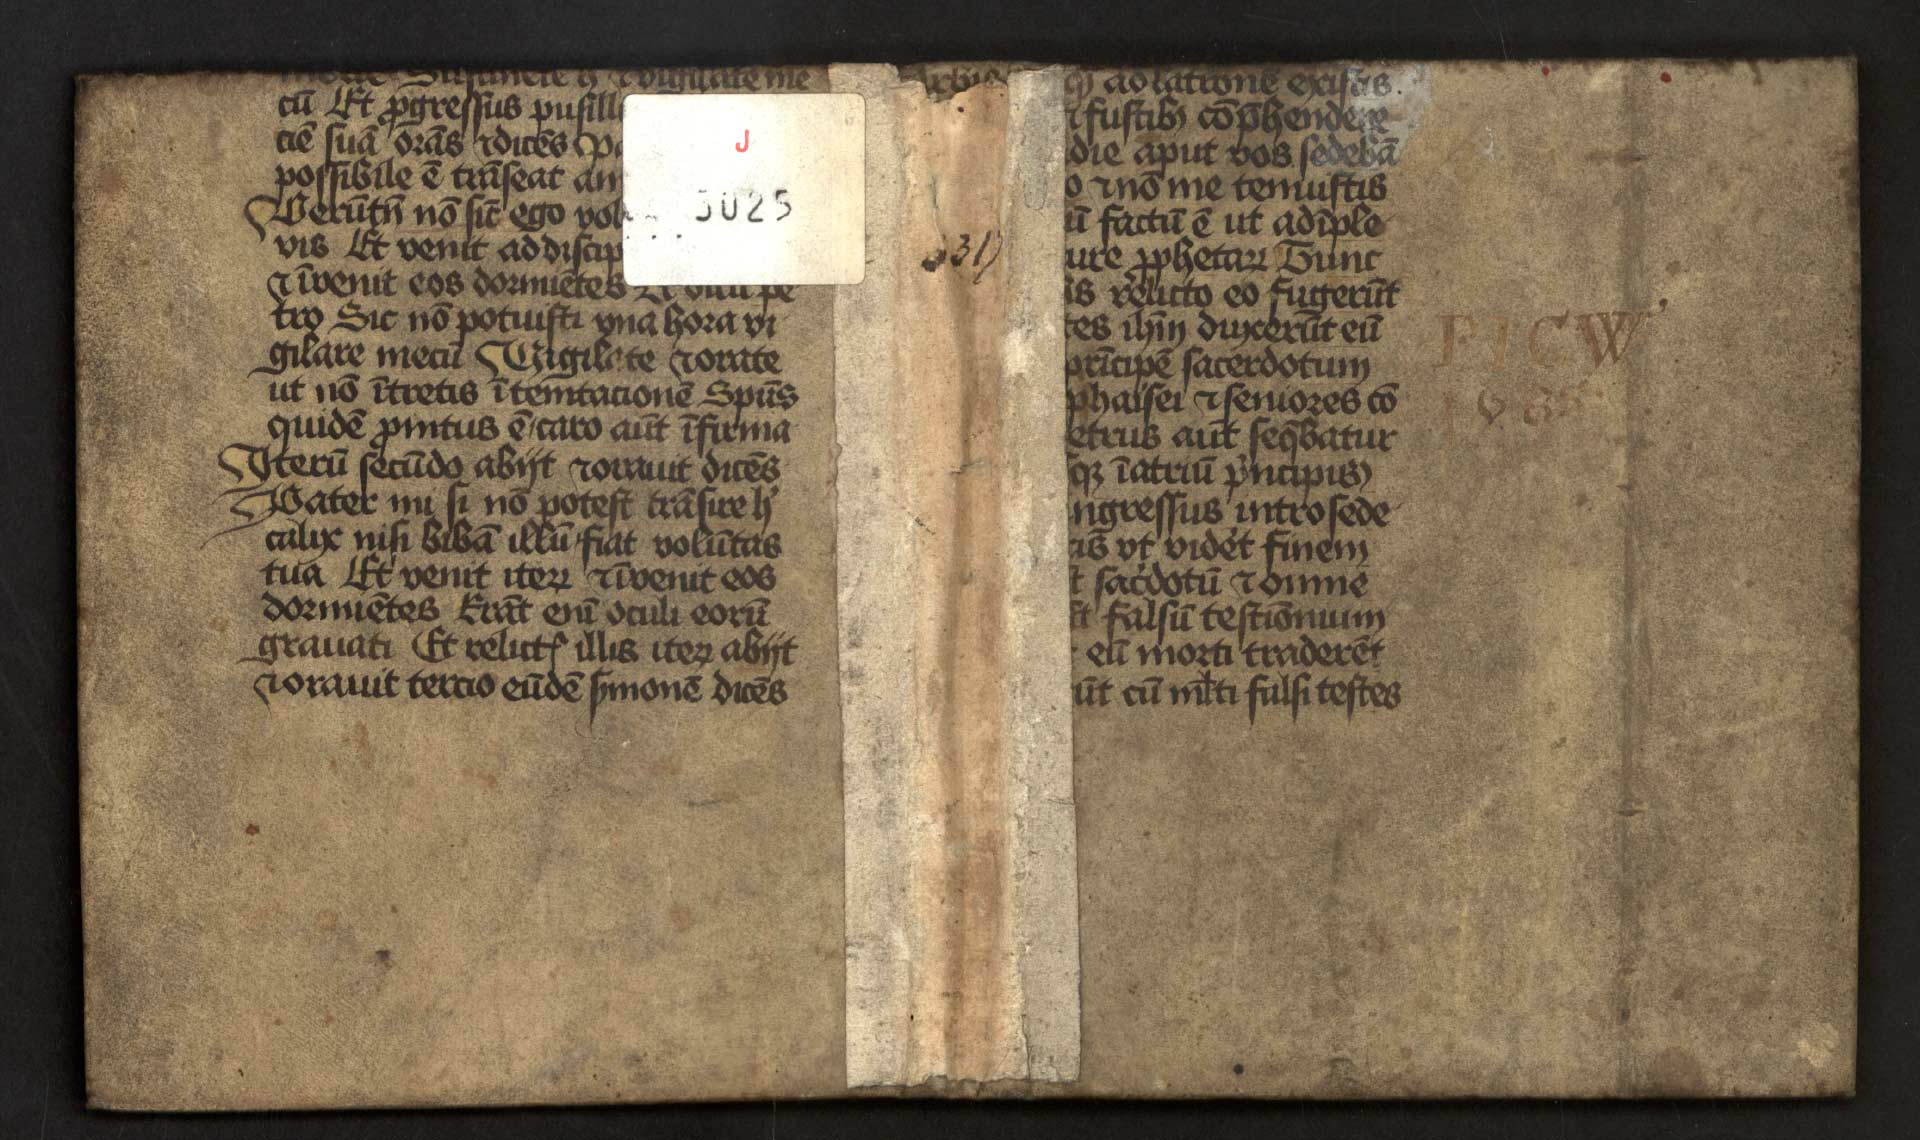 mecle Sustinete h̄ ⁊ vigilate me
cū Et ꝓgressus pusill
ciē suā orās ⁊dicēs Pa
possibile ē trāseat am
Verūtn̄ nō sic̄ ego vol
vis Et venit ad discip
⁊ īvenit eos dormiētes Et dixit pe
tro Sic nō potuisti vna hora vi
gilare mecū Vigilate ⁊orate
ut nō ītretis ī temtacionē Spūs
quidē ꝓmtus ē caro aūt īfirma
Iterū secūdo abijt ⁊oravit dicēs
Pater mi si nō potest trāsire h̄
calix nisi bibā illū fiat volūtas
tua Et venit iteꝝ ⁊īvenit eos
dormiētes Erāt enī oculi eorū
gravati Et relictꝭ illis iteꝝ abijt
⁊oravit tercio eūdē ẜmonē dicēs
J
5025
317
ad latronē existis
⁊ fustibꝫ cōp̄hendere
die aput vos sedebā
o ⁊nō me tenuistis
ū factū ē ut adīple
ure ꝓphetaꝝ Tunc
īs relicto eo fugerūt
tes ih̄m duxerūt eū
prīcipē sacerdotum
phaisei ⁊seniores cō
etrus aūt seq̄batur
qꝫ ī atriū pͥncipis
ngressus intro sede
is vt vidēt finem
t sac̄dotū ⁊ omne
st falsū testīonium
eū morti traderēt
ūt cū ml̄ti falsi testes
FICW
1585